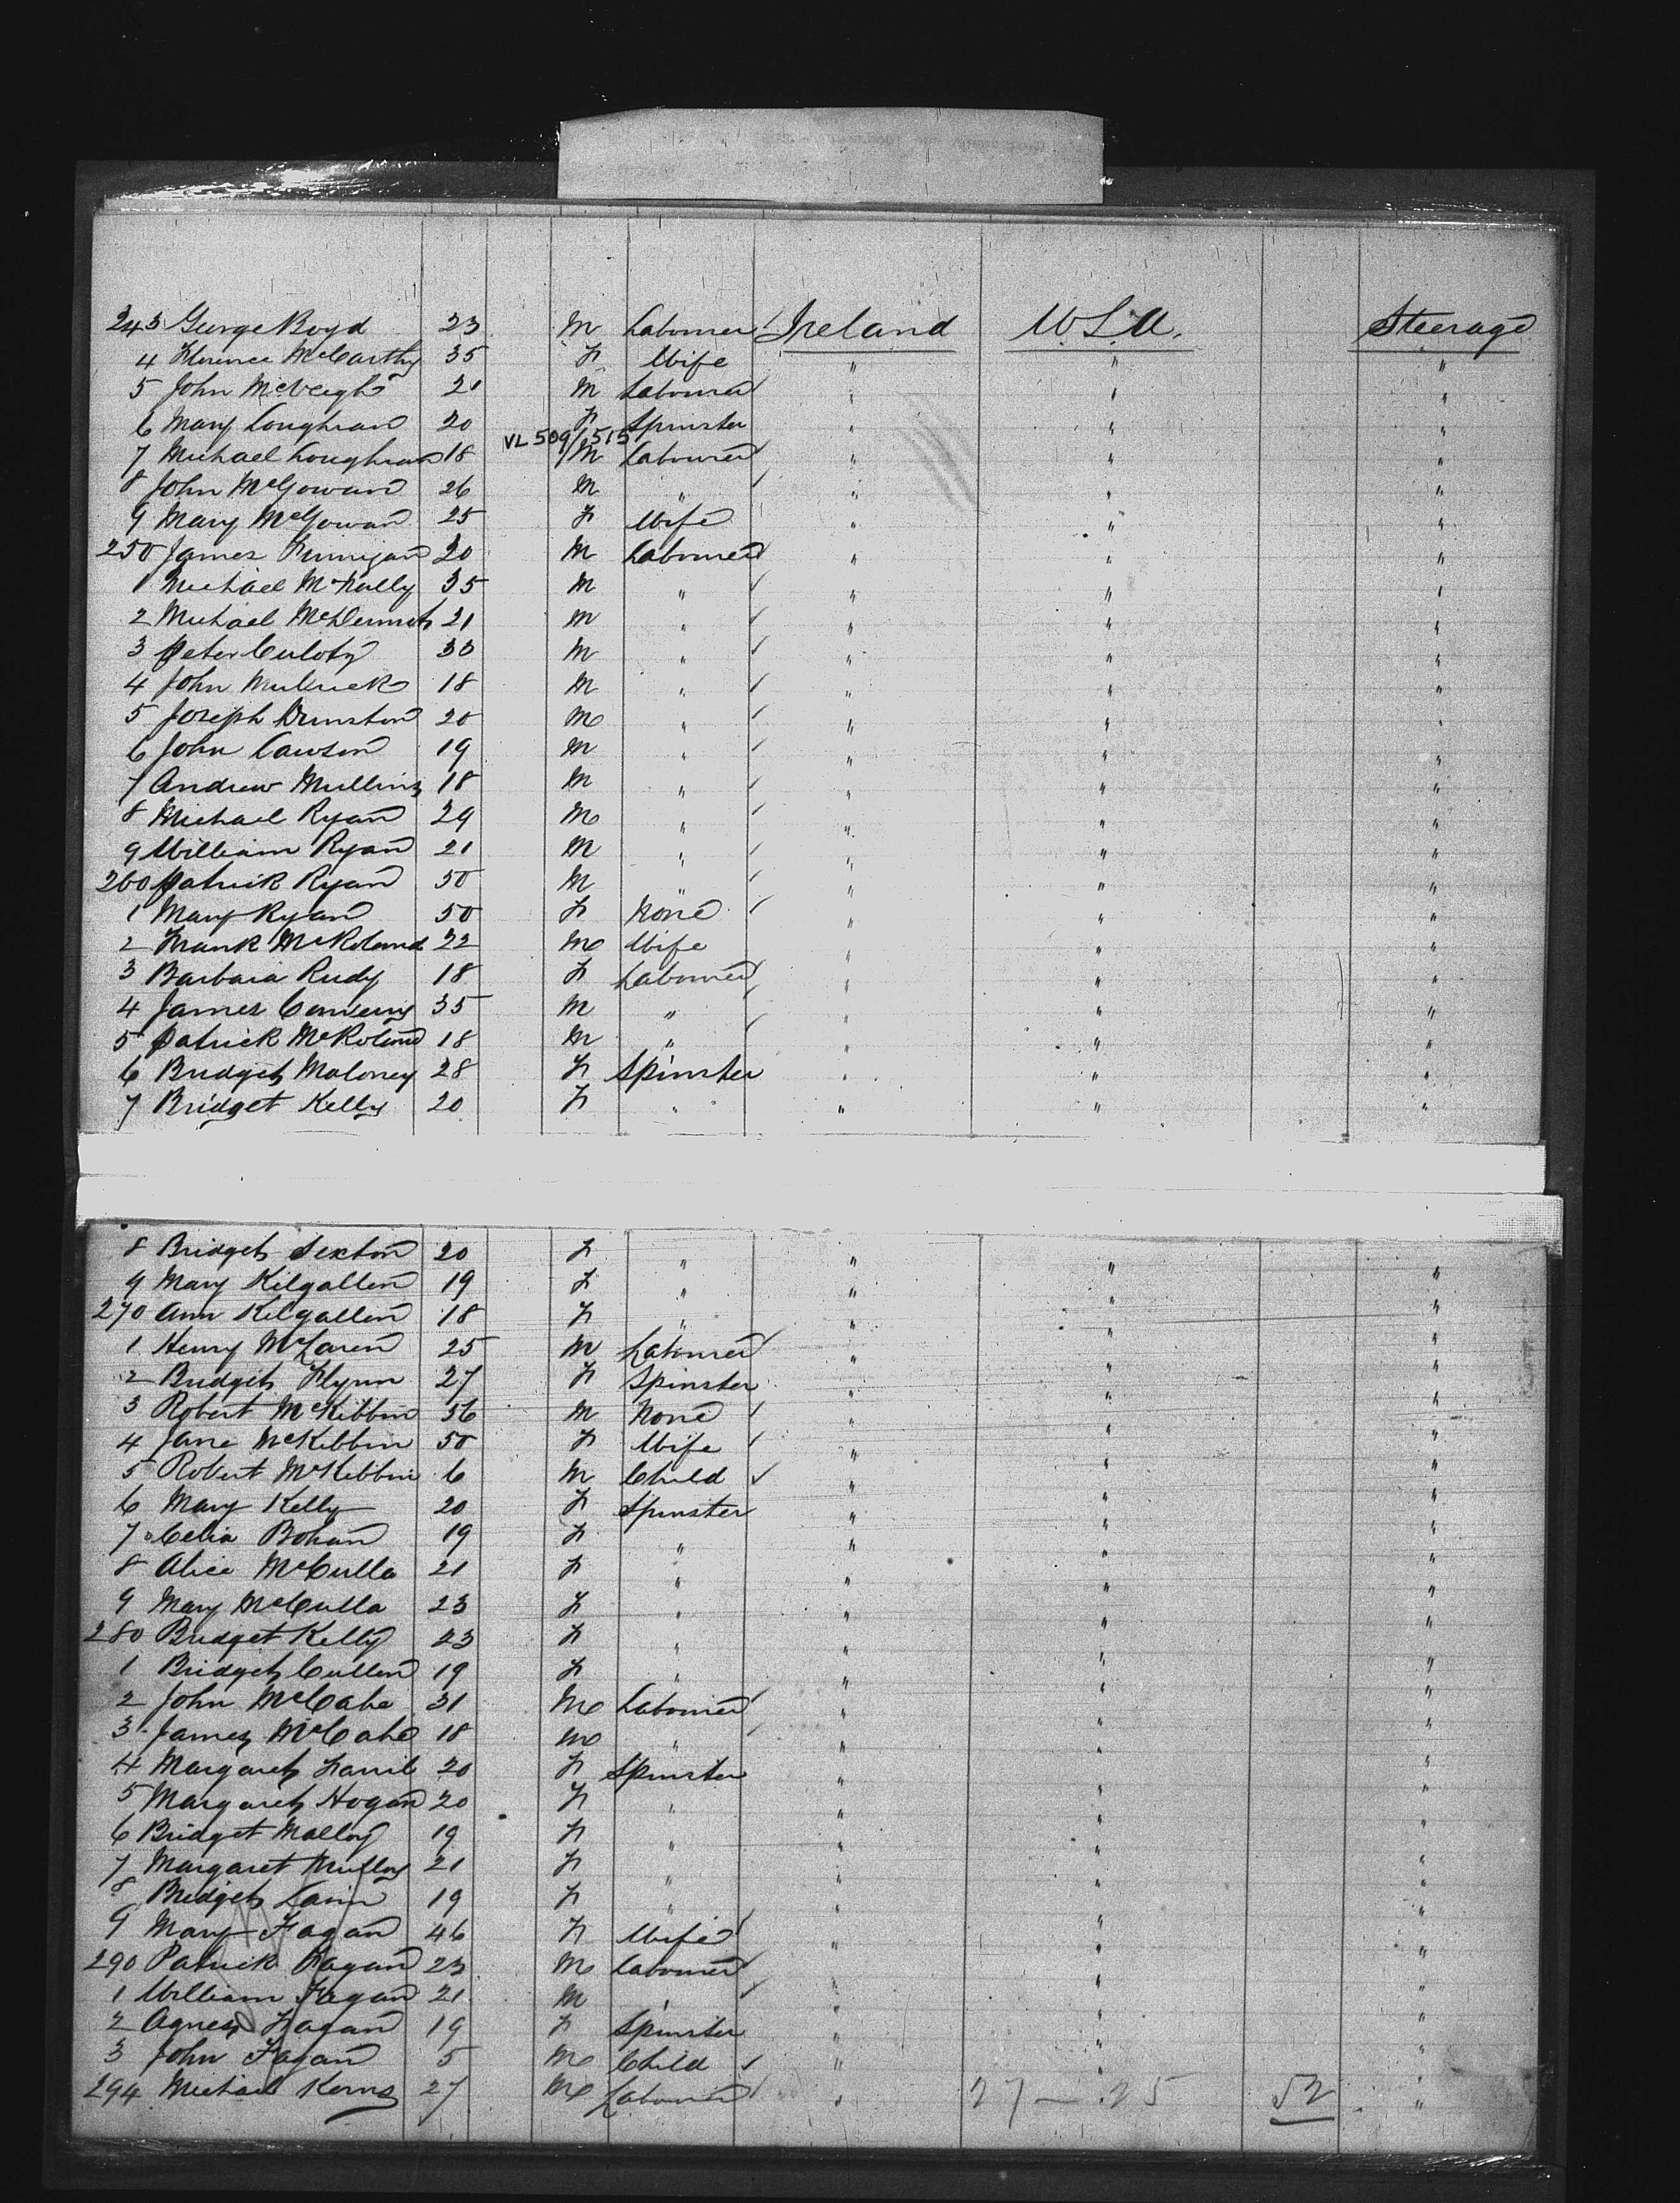 243 George Boyd 23 M Labourer Ireland U.S.A. Steerage
4 Florence McCarthy 35 F Wife " " "
5 John McVeigh 21 M Labourer " " "
6 Mary Loughran 20 F Spinster " " "
VL 509/515
7 Michael Loughran 18 M Labourer " " "
8 John McGowan 26 M " " " "
9 Mary McGowan 25 F Wife " " "
250 James Finnigan 20 M Labourer " " "
1 Michael McNally 35 M " " " "
2 Michael McDermott 21 M " " " "
3 Peter Culoty 33 M " " " "
4 John 18 M " " " "
5 Joseph Dunston 20 M " " " "
6 John Lawson 19 M " " " "
7 Andrew Mullins 18 M " " " "
8 Michael Ryan 29 M " " " "
9 William Ryan 21 M " " " "
260 Patrick Ryan 50 M " " " "
1 Mary Ryan 50 F None " " "
2 Frank McRoland 22 M Wife " " "
3 Barbara Rudy 18 F Labourer " " "
4 James 35 M " " " "
5 Patrick McRoland 18 M " " " "
6 Bridget Maloney 28 F Spinster " " "
7 Bridget Kelly 20 F " " " "
8 Bridget Sexton 20 F " " " "
9 Mary Kilgallen 19 F " " " "
270 Ann Kilgallen 18 F " " " "
1 Henry McLaren 25 M Labourer " " "
2 Bridget Flynn 27 F Spinster " " "
3 Robert McKibbin 56 M None " " "
4 Jane McKibbin 50 F Wife " " "
5 Robert McKibbin 6 M Child " " "
6 Mary Kelly 20 F Spinster " " "
7 Celia Bohan 19 F " " " "
8 Alice McCulla 21 F " " " "
9 Mary McCulla 23 F " " " "
280 Bridget Kelly 23 F " " " "
1 Bridget Cullen 19 F " " " "
2 John McCabe 31 M Labourer " " "
3 James McCabe 18 M " " " "
4 Margaret 20 F Spinster " " "
5 Margaret Hogan 20 F " " " "
6 Bridget Malloy 19 F " " " "
7 Margaret Mulloy 21 F " " " "
8 Bridget Lavin 19 F " " " "
9 Mary Fagan 46 F Wife " " "
290 Patrick Fagan 23 M Labourer " " "
1 William Fagan 21 M " " " "
2 Agnes Fagan 19 F Spinster " " "
3 John Fagan 5 M Child " " "
294 Michael Kerns 27 M Labourer " 27 — 25 52 "